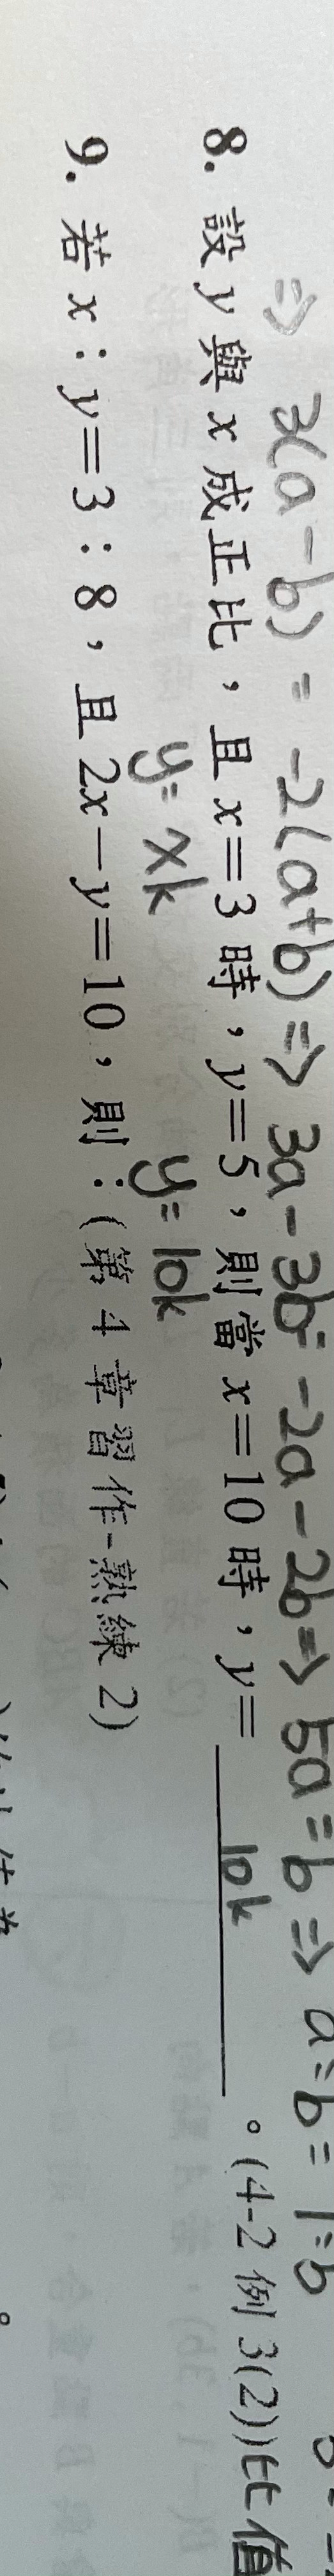 ⇒ 3(a-b) = -2(a+b) ⇒ 3a-3b=-2a-2b ⇒ 5a=b ⇒ a:b=1:5
8. 設 y 與 x 成正比，且 x=3 時，y=5，則當 x=10 時，y= 10k 。(4-2 例 3(2))比值
y=xk y=10k
9. 若 x：y=3：8，且 2x-y=10，則：(第 4 章習作-熟練 2)